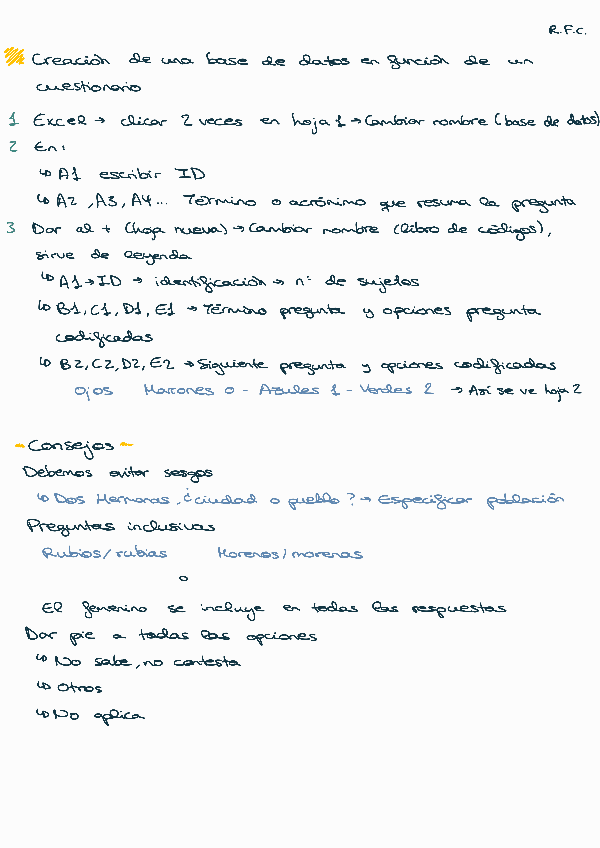 R.F.C.
Creación de una base de datos en función de un
cuestionario
1 Excel → clicar 2 veces en hoja 1 → Cambiar nombre (base de datos)
2 En:
↳ A1 escribir ID
↳ A2, A3, A4... Término o acrónimo que resuma la pregunta
3 Dar al + (hoja nueva) → Cambiar nombre (libro de códigos),
sirve de leyenda
↳ A1 → ID → identificación → nº de sujetos
↳ B1, C1, D1, E1 → Término pregunta y opciones pregunta
codificadas
↳ B2, C2, D2, E2 → Siguiente pregunta y opciones codificadas
Ojos Marrones 0 - Azules 1 - Verdes 2 → Así se ve hoja 2
- Consejos -
Debemos evitar sesgos
↳ Dos Hermanas, ¿ciudad o pueblo? → Especificar población
Preguntas inclusivas
Rubios/rubias Morenos/morenas
o
El femenino se incluye en todas las respuestas
Dar pie a todas las opciones
↳ No sabe, no contesta
↳ Otros
↳ No aplica